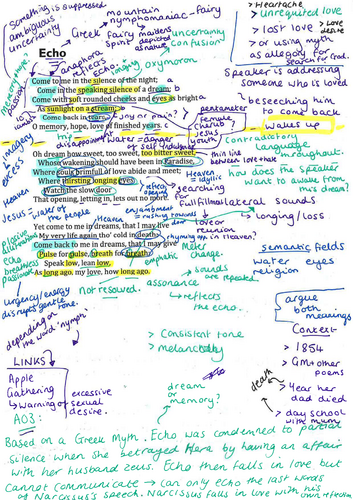 something is suppressed
ambiguous
uncertainty
mountain
nymphomaniac - fairy
Greek fairy maidens
spirit depicted as nature
uncertainty
confusion
> Heartache
> unrequited love
> lost love
> love desire
> or using myth as allegory for search for God.
Speaker is addressing someone who is loved
Echo
anaphora
oxymoron
Come to me in the silence of the night;
Come in the speaking silence of a dream;
Come with soft rounded cheeks and eyes as bright
As sunlight on a stream;
Come back in tears,
O memory, hope, love of finished years.
a
b
a
b
c
c
joy or pain?
pentameter
female
cherub
Jesus
youth
beseeching him to come back
wakes up
contradictory language throughout.
how does the speaker want to awake from this dream?
imagery
of
excess
disappointment
water - danger of self indulgence
Oh dream how sweet, too sweet, too bitter sweet,
Whose wakening should have been in Paradise,
Where souls brimfull of love abide and meet;
Where thirsting longing eyes
Watch the slow door
That opening, letting in, lets out no more.
thin line between love + hate
Heraldic idyllic
searching for fulfillment
lateral sounds
longing/loss
heaven
Jesus - water of the people
Heaven
enjambment
rushing towards lover
death or reunion in Heaven?
Yet come to me in dreams, that I may live
My very life again tho' cold in death:
Come back to me in dreams, that I may give
Pulse for pulse, breath for breath:
Speak low, lean low,
As long ago, my love, how long ago.
plosive
alliteration
echo
breathless
passionate
rhyming
meter
emphatic change.
> sounds are repeated.
semantic fields
water eyes
religion
urgency/energy
disrupts gentle tone.
not resolved.
assonance
> reflects the echo.
depending on the word 'nymph'
> Consistent tone
> melancholy
argue both meanings
LINKS
Apple Gathering
> Warning of
excessive sexual desire.
dream or memory?
Context
> 1854
> GM + other poems
> Year her dad died
> day school with mum
death
AO3:
Based on a Greek Myth. Echo was condemned to partial
silence when she betrayed Hera by having an affair
with her husband zeus. Echo then falls in love but
cannot communicate → can only echo the last words
of Narcissus's speech. Narcissus falls in love with his own reflection